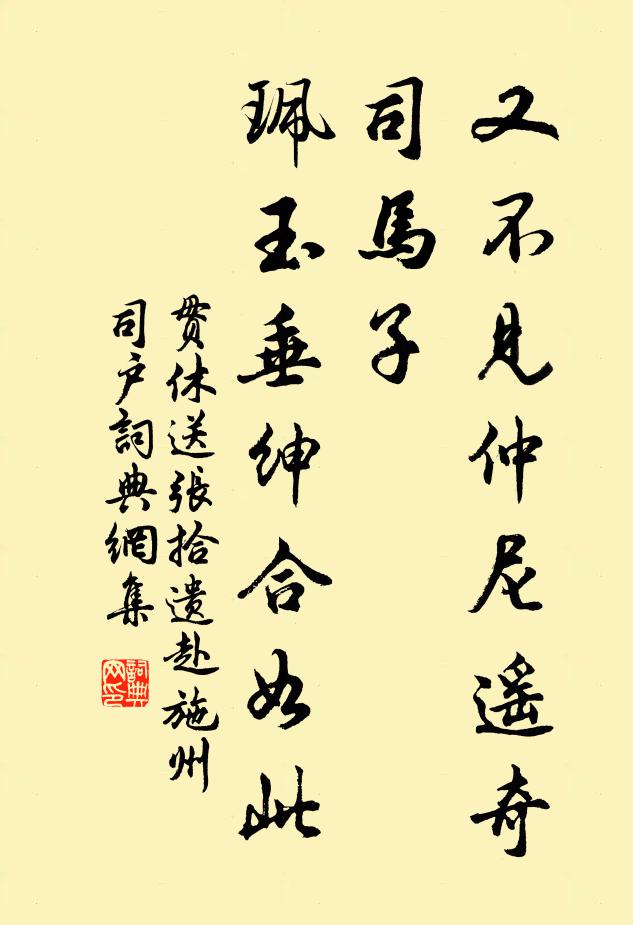 又不見仲尼遥奇
司馬子
珮玉垂紳合如此
贯休送張拾遗赴施州
司户詞典網集
詞典网印